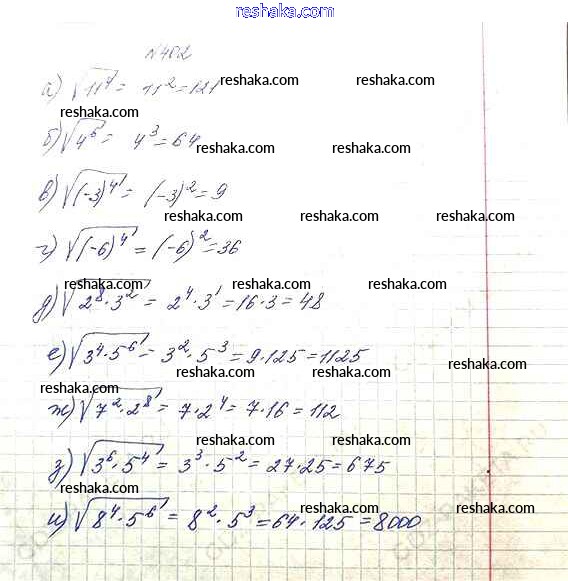 reshaka.com
№402
а) √11⁴ = 11² = 121 reshaka.com reshaka.com
reshaka.com
б) √4⁶ = 4³ = 64 reshaka.com reshaka.com
в) √(-3)⁴ = (-3)² = 9
reshaka.com reshaka.com reshaka.com
г) √(-6)⁴ = (-6)² = 36
reshaka.com reshaka.com reshaka.com
д) √2⁸·3² = 2⁴·3¹ = 16·3 = 48
reshaka.com reshaka.com
е) √3⁴·5⁶ = 3²·5³ = 9·125 = 1125 reshaka.com
reshaka.com reshaka.com reshaka.com
ж) √7²·2⁸ = 7·2⁴ = 7·16 = 112
reshaka.com reshaka.com
з) √3⁶·5⁴ = 3³·5⁻² = 27·25 = 675
reshaka.com reshaka.com reshaka.com
и) √8⁴·5⁶ = 8²·5³ = 64·125 = 8000
reshaka.com reshaka.com